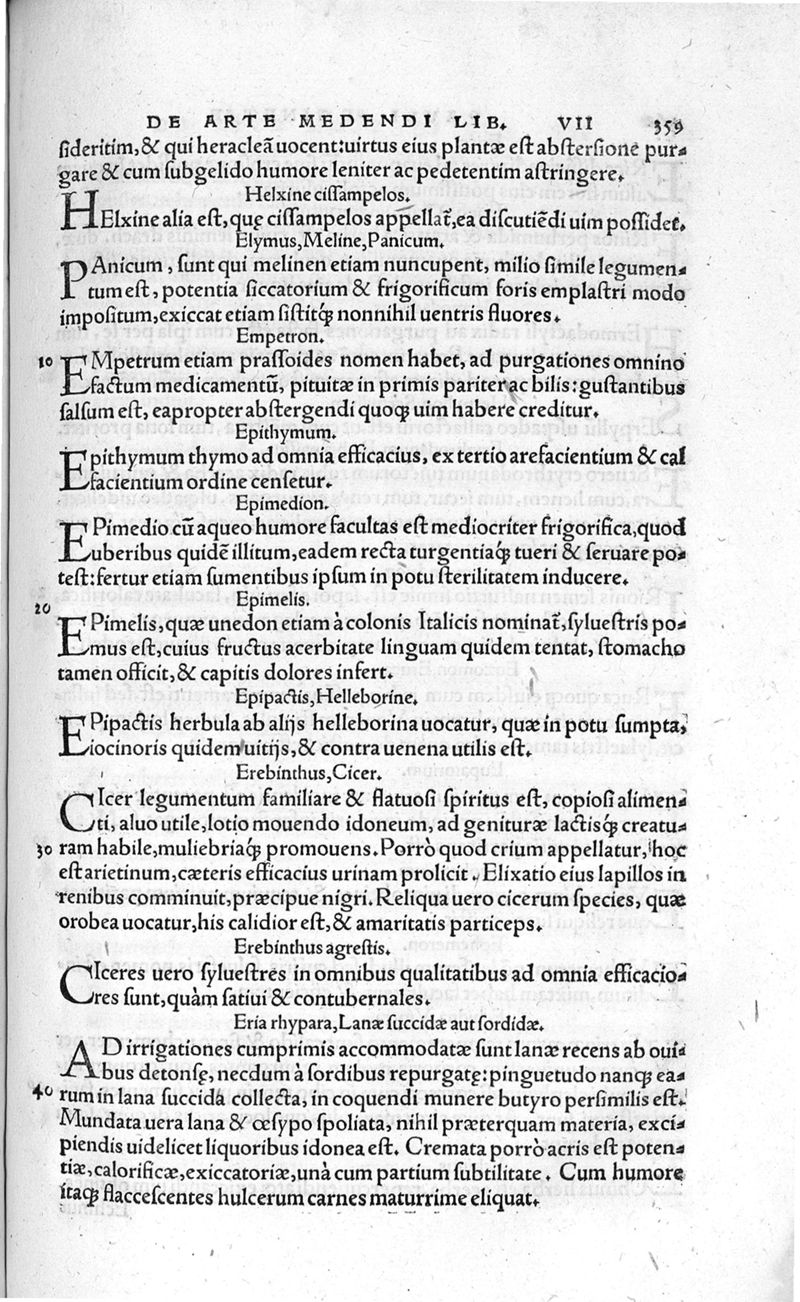 DE ARTE MEDENDI LIB. VII 359
ſideritim,& qui heracleã uocent:uirtus eius plantæ eſt abſterſione pur-
gare & cum ſubgelido humore leniter ac pedetentim aſtringere.
Helxine ciſſampelos.
HElxine alia eſt,quę ciſſampelos appellat̃,ea diſcutiẽdi uim poſſidet.
Elymus,Meline,Panicum.
PAnicum, ſunt qui melinen etiam nuncupent, milio ſimile legumen-
tum eſt, potentia ſiccatorium & frigorificum foris emplaſtri modo
impoſitum,exiccat etiam ſiſtitq́ꝫ nonnihil uentris fluores.
Empetron.
10 EMpetrum etiam praſſoides nomen habet, ad purgationes omnino
factum medicamentũ, pituitæ in primis pariter ac bilis:guſtantibus
ſalſum eſt, eapropter abſtergendi quoqꝫ uim habere creditur.
Epithymum.
Epithymum thymo ad omnia efficacius, ex tertio arefacientium & cal
facientium ordine cenſetur.
Epimedion.
EPimedio cũ aqueo humore facultas eſt mediocriter frigorifica,quod
uberibus quidẽ illitum,eadem recta turgentiaq́ꝫ tueri & ſeruare po-
teſt:fertur etiam ſumentibus ipſum in potu ſterilitatem inducere.
20 Epimelis.
EPimelis,quæ unedon etiam à colonis Italicis nominat̃,ſylueſtris po-
mus eſt,cuius fructus acerbitate linguam quidem tentat, ſtomacho
tamen officit,& capitis dolores infert.
Epipactis,Helleborine.
EPipactis herbula ab alijs helleborina uocatur, quæ in potu ſumpta,
iocinoris quidem uitijs,& contra uenena utilis eſt.
Erebinthus,Cicer.
CIcer legumentum familiare & flatuoſi ſpiritus eſt, copioſi alimen-
ti, aluo utile,lotio mouendo idoneum, ad genituræ lactisq́ꝫ creatu-
30 ram habile,muliebriaq́ꝫ promouens.Porrò quod crium appellatur, hoc
eſt arietinum,cæteris efficacius urinam prolicit. Elixatio eius lapillos in
renibus comminuit,præcipue nigri.Reliqua uero cicerum ſpecies, quæ
orobea uocatur,his calidior eſt,& amaritatis particeps.
Erebinthus agreſtis.
CIceres uero ſylueſtres in omnibus qualitatibus ad omnia efficacio-
res ſunt,quàm ſatiui & contubernales.
Eria rhypara,Lanæ ſuccidæ aut ſordidæ.
AD irrigationes cumprimis accommodatæ ſunt lanæ recens ab oui-
bus detonſę, necdum à ſordibus repurgatę:pinguetudo nanqꝫ ea-
40 rum in lana ſuccida collecta, in coquendi munere butyro perſimilis eſt.
Mundata uera lana & œſypo ſpoliata, nihil præterquam materia, exci-
piendis uidelicet liquoribus idonea eſt. Cremata porrò acris eſt poten-
tiæ,calorificæ,exiccatoriæ,unà cum partium ſubtilitate. Cum humore
itaqꝫ flacceſcentes hulcerum carnes maturrime eliquat.